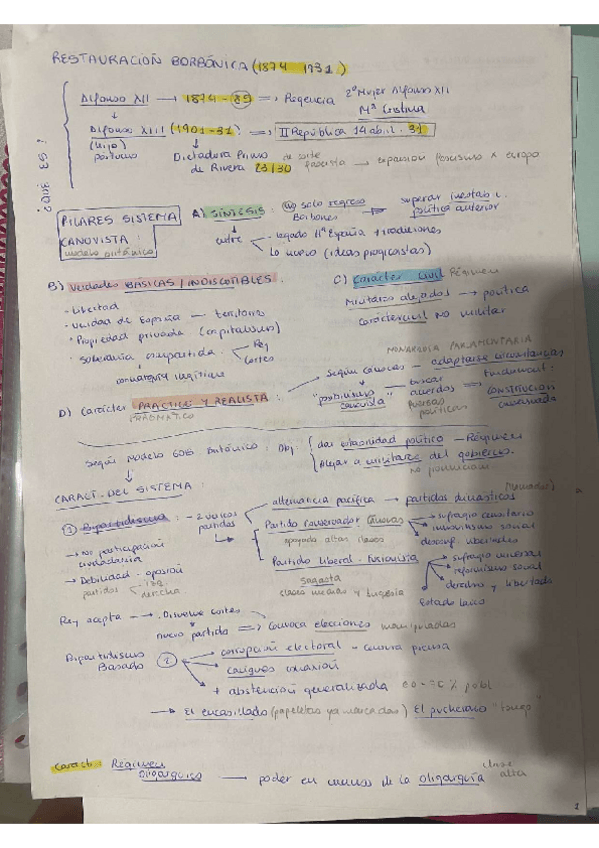 RESTAURACIÓN BORBÓNICA (1874 1931)
Alfonso XII → 1874-85 => Regencia 2ª Mujer Alfonso XII
Mª Cristina
Alfonso XIII (1901-31) => II República 14 abril 31
(hijo)
póstumo
Dictadura Primo de Rivera 23/30 de corte fascista → expansión fascismo x europa
PILARES SISTEMA
CANOVISTA:
modelo británico
A) SÍNTESIS: no solo regreso Borbones → superar inestab. política anterior
entre - legado Hª España + tradiciones
Lo nuevo (ideas progresistas)
B) Verdades BÁSICAS / INDISCUTIBLES
- Libertad
- Unidad de España — territorio
- Propiedad privada (capitalismo)
- Soberanía compartida - Rey
Cortes
monarquía legítima
C) Carácter Civil Régimen
Militares alejados → política
carácter civil NO militar
MONARQUÍA PARLAMENTARIA
D) Carácter PRÁCTICO Y REALISTA:
PRAGMÁTICO
Según Cánovas - adaptarse circunstancias
"posibilismo canovista" — buscar acuerdos => fundament:
fuerzas políticas
CONSTITUCIÓN
Según Modelo Gob Británico: Obj: dar estabilidad político - Régimen
Alejar a militares del gobierno.
No pronunciam
CARACT. DEL SISTEMA:
① Bipartidismo: - 2 únicos partidos
alternancia pacífica → partidos dinásticos
→ No participación ciudadana
→ Debilidad - oposición
partidos izq
derecha
Partido conservador Cánovas
apoyado altas clases
sufragio censitario
inmovilismo social
Partido Liberal - Fusionista
Sagasta
clases medias y burguesía
sufragio universal
reformismo social
derechos y libertades
Estado laico
Rey acepta → Disuelve cortes
nuevo partido => convoca elecciones manipuladas
Bipartidismo Basado ②
corrupción electoral - censura prensa
caciques
+ abstención generalizada
→ El encasillado (papeletas ya marcadas) El pucherazo "tongo"
Caract: Régimen
Oligárquico → poder en manos de la oligarquía clase alta
1